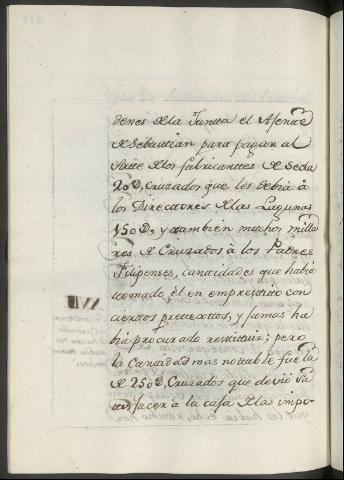 denes de la Junta el Asente
de Sebastian para pagar al
Arte de los fabricantes de Seda
20D, Cruzados que les debia à
los Directores de las Lagunas
150D, y tambien muchos milla
res de Cruzados à los Padres
Filipenses, cantidades que habia
tomado èl en emprestito con
ciertos pretextos, y jamas ha
bia procurado restituir; pero
la Cantidad mas notable fue la
de 250D, Cruzados que deviò sa
tisfacer à la casa de las impo-
XVII